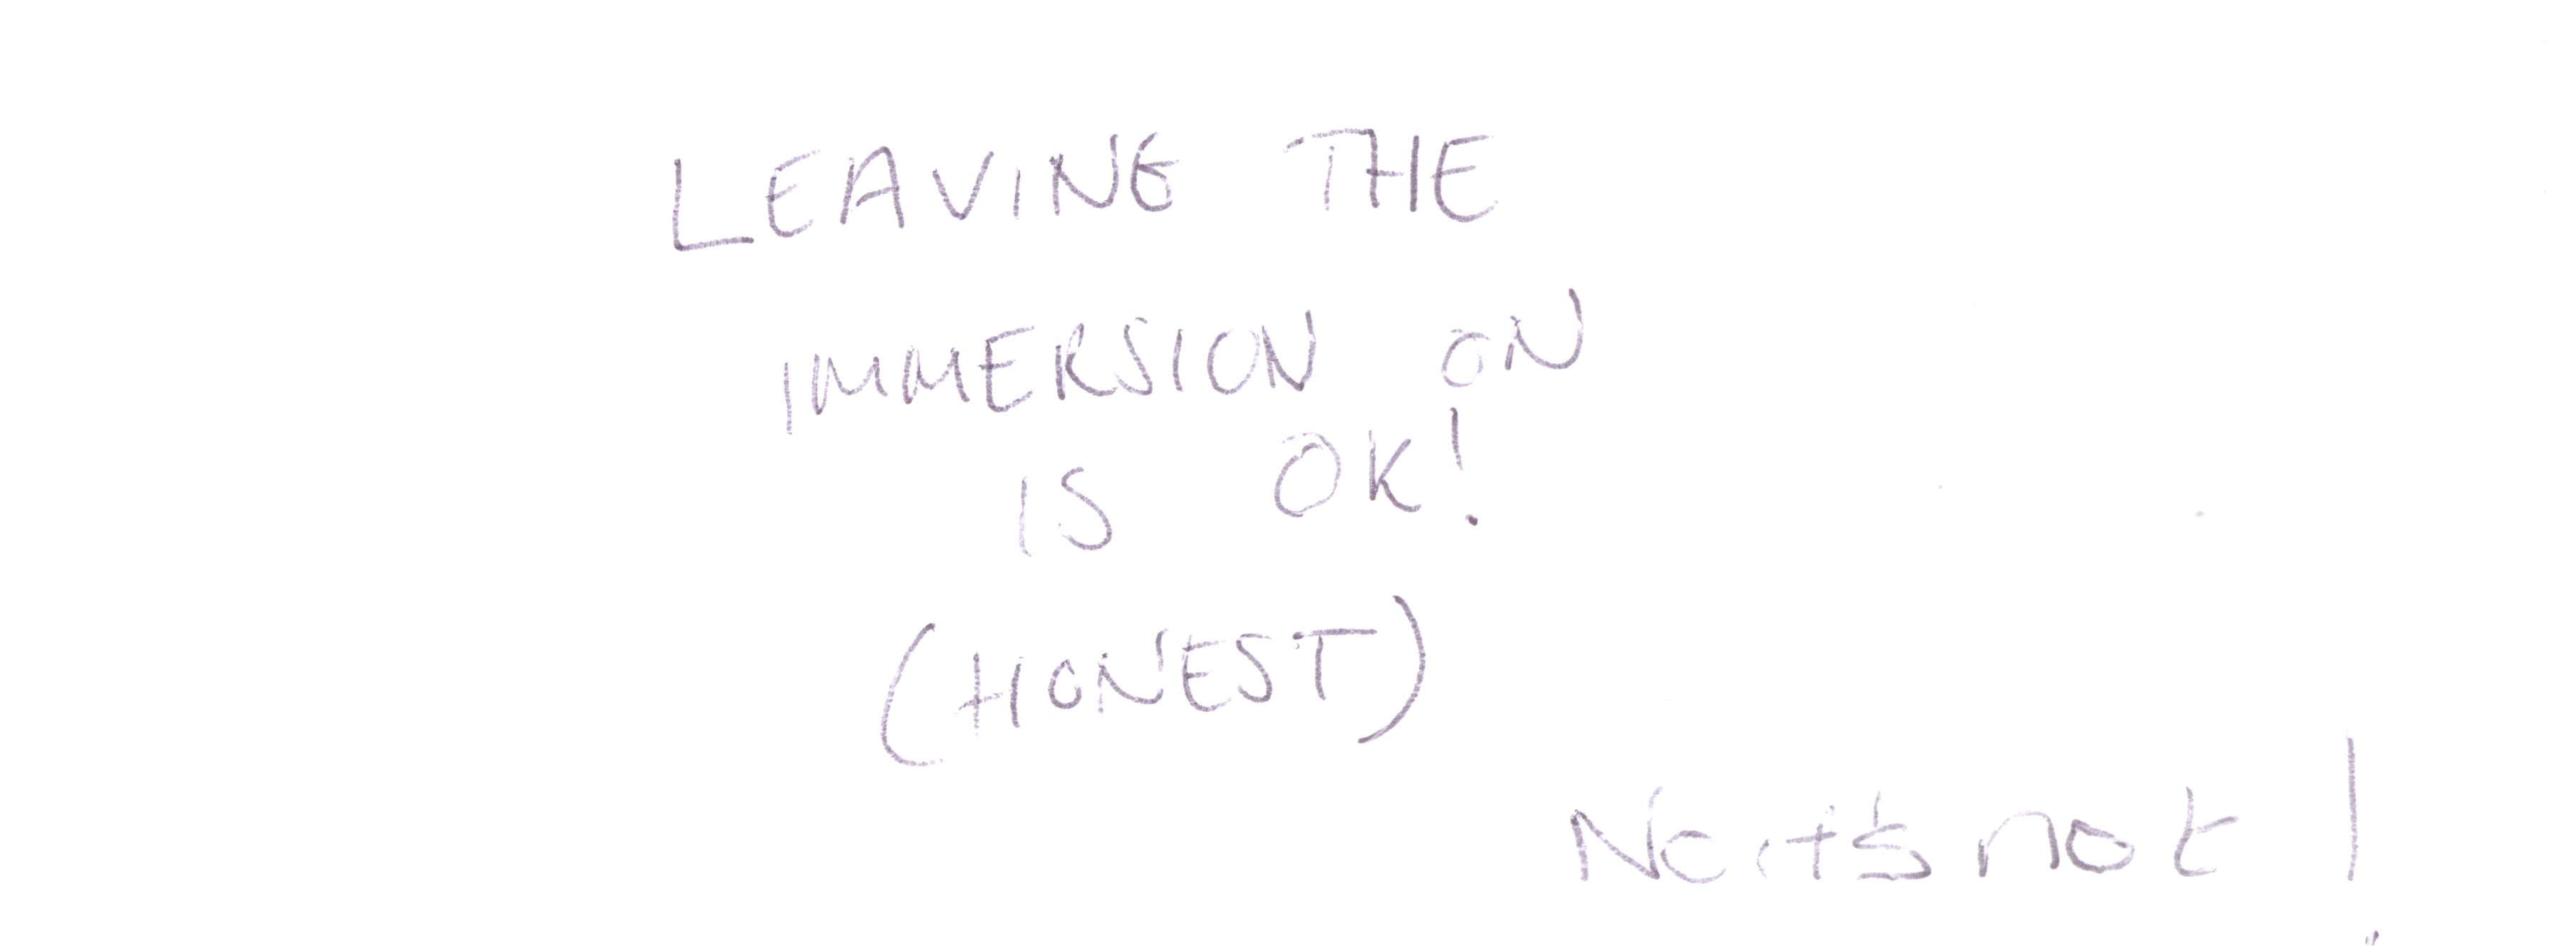 LEAVING THE
IMMERSION ON
IS OK!
(HONEST)
No it's not!